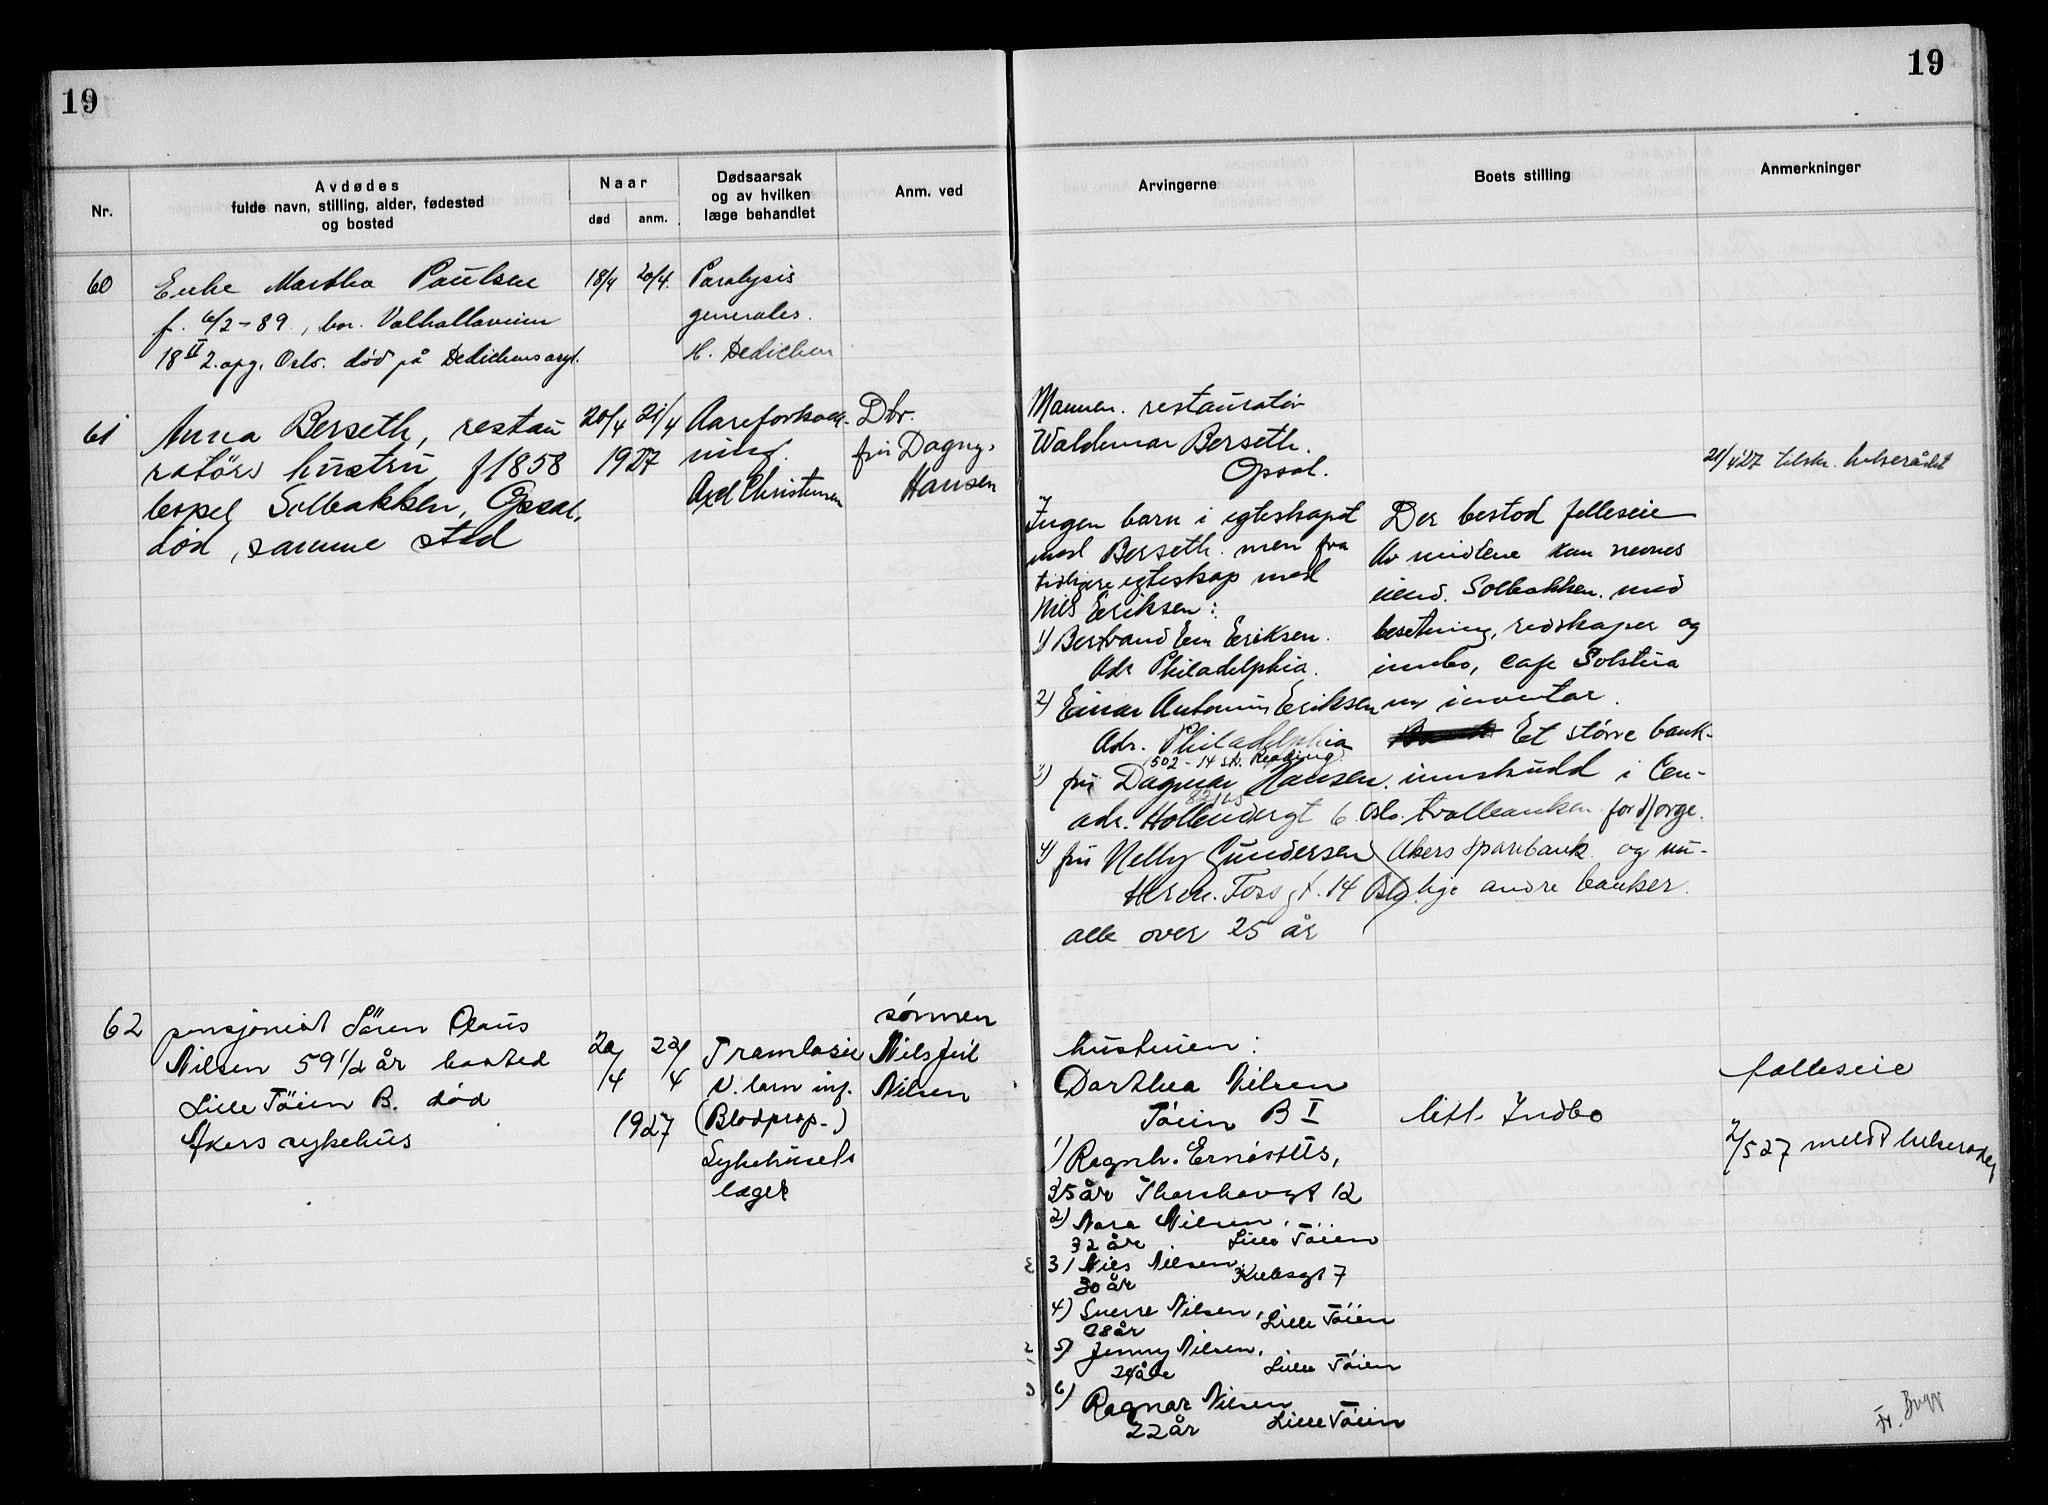 19
19
Nr.
Avdødes
fulde navn, stilling, alder, fødested
og bosted
Naar
død
anm.
Dødsaarsak
og av hvilken
læge behandlet
Anm. ved
Arvingerne
Boets stilling
Anmerkninger
60
Enke Martha Paulsen
f. 6/2-89, bor. Valhallaveien
18 II 2. opg. Oslo. død på Dedichens asyl.
18/4
20/4.
Paralysis
generales.
H. Dedichen
61
Anna Berseth, restau
ratørs hustru f 1858
bopel Solbakken, Opsal,
død, samme sted
20/4
21/4
1927
Aareforkalk-
ning.
Axel Christensen
Dtr.
fru Dagny
Hansen
Mannen. restauratør
Waldemar Berseth.
Opsal.
Ingen barn i egteskapet
med Berseth. men fra
tidligere egteskap med
Nils Eriksen:
1) Bertrand Eriksen.
Adr Philadelphia.
2) Einar Antonius Eriksen
Adr. Philadelphia
502 - 14 st. Reading
3) fru Dagmar Hansen.
adr. Hollendergt 6 Oslo.
4) fru Nelly Gundersen
Herm. Foss gt. 14 Oslo
alle over 25 år
Der bestod felleseie
Av midlene kan nevnes
eiend. Solbakken. med
besetning, redskaper og
innbo, cafe Solstua
m inventar.
Et større bank-
innskudd i Cen-
tralbanken for Norge.
Akers sparebank og mu-
lige andre banker.
21/4 27 tilskr. helserådet
62
pensjonist Sören Olaus
Nilsen 59 1/2 år bosted
Lille Töien B. död
Akers sykehus
20/4
22/4
1927
Trombosie
v. lem inf.
(Blodprop-)
Sykehusets
læger
sönnen
Nils Juil
Nilsen
hustruen:
Dorthea Nilsen
Töien B I
1) Ragnh. Ernöstus,
35 år Thorshovgt 12
2) Nora Nilsen,
32 år Lille Töien
3) Nils Nilsen,
30 år Kielsgt 7
4) Sverre Nilsen,
28 år Lille Töien
5) Jenny Nilsen,
24 år Lille Töien
6) Ragnar Nilsen
22 år Lille Töien
litt Indbo
fælleseie
2/5 27 meldt helseradet
Fr. Bugg